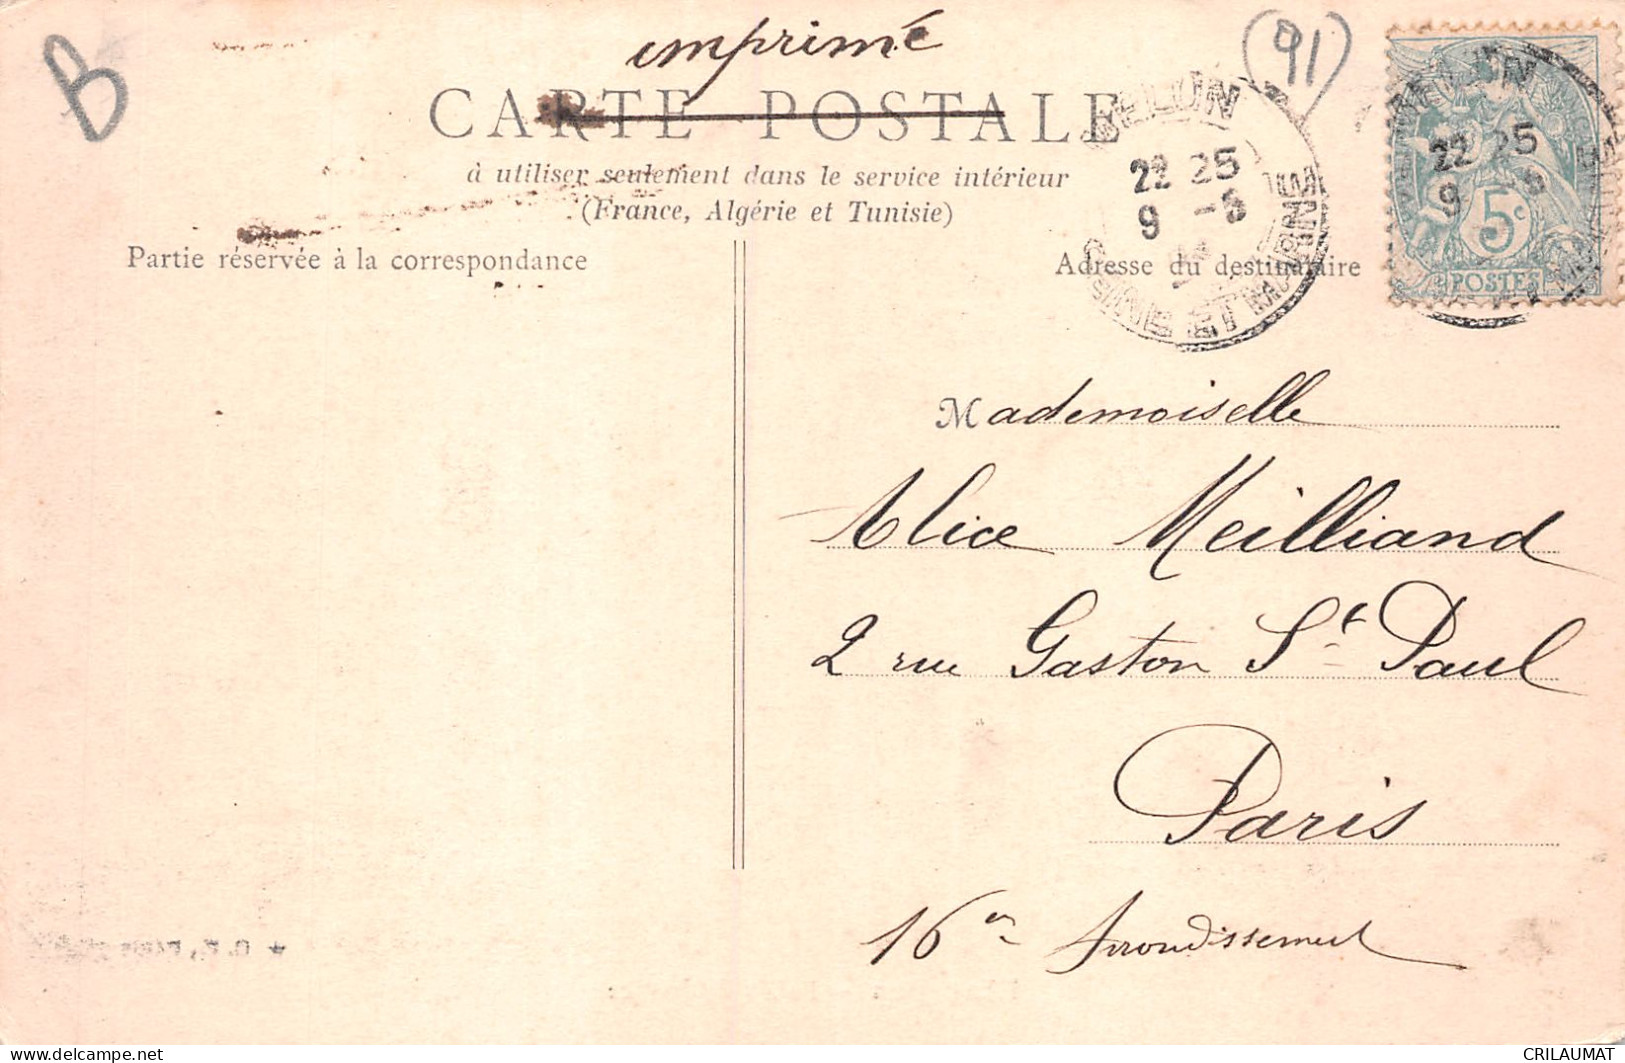 B
imprimé
(91)
CARTE POSTALE
à utiliser seulement dans le service intérieur
(France, Algérie et Tunisie)
Partie réservée à la correspondance
Adresse du destinataire
MELUN
22 25
9
SEINE ET MARNE
MELUN
22 25
9
5c
POSTES
Mademoiselle
Alice Meilliand
2 rue Gaston St Paul
Paris
16e Arrondissement
delcampe.net
CRILAUMAT